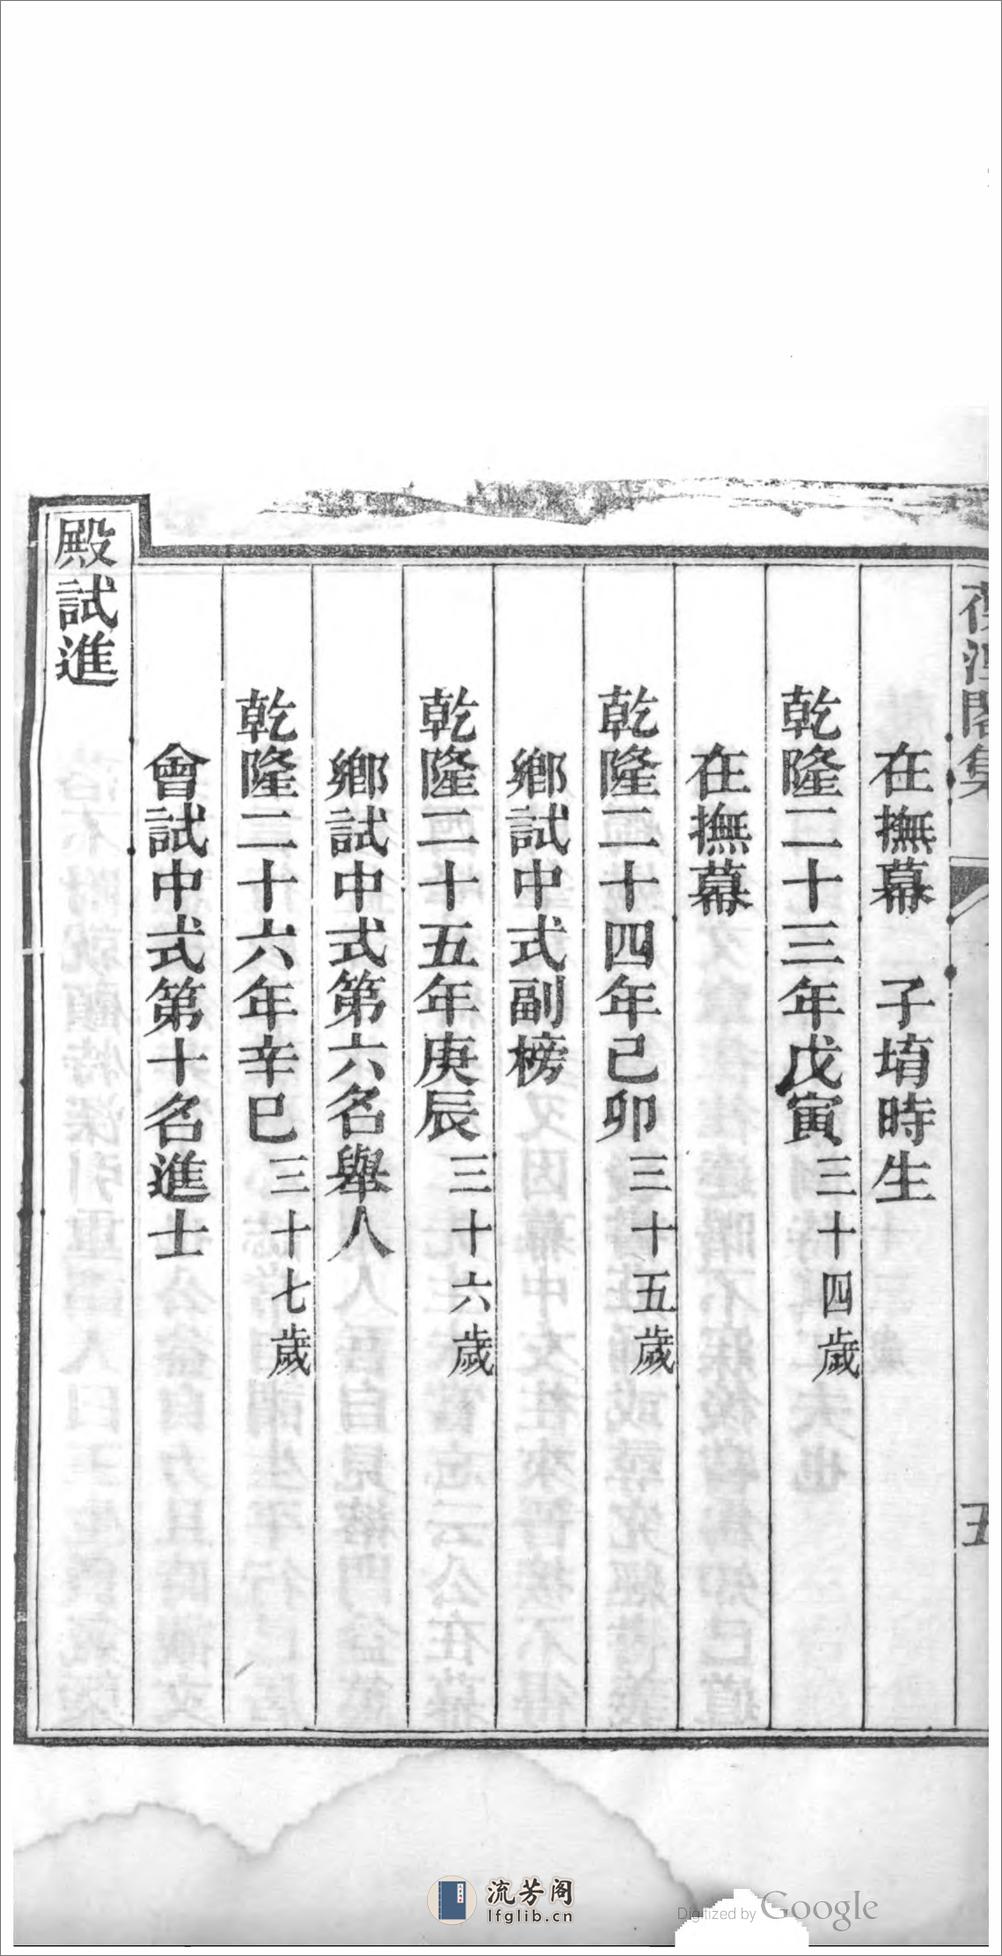 葆淳閣集
五
在撫幕　子堉時生
乾隆二十三年戊寅三十四歲
在撫幕
乾隆二十四年己卯三十五歲
鄉試中式副榜
乾隆二十五年庚辰三十六歲
鄉試中式第六名舉人
乾隆二十六年辛巳三十七歲
會試中式第十名進士
殿試進
流芳阁
lfglib.cn
Digitized by Google